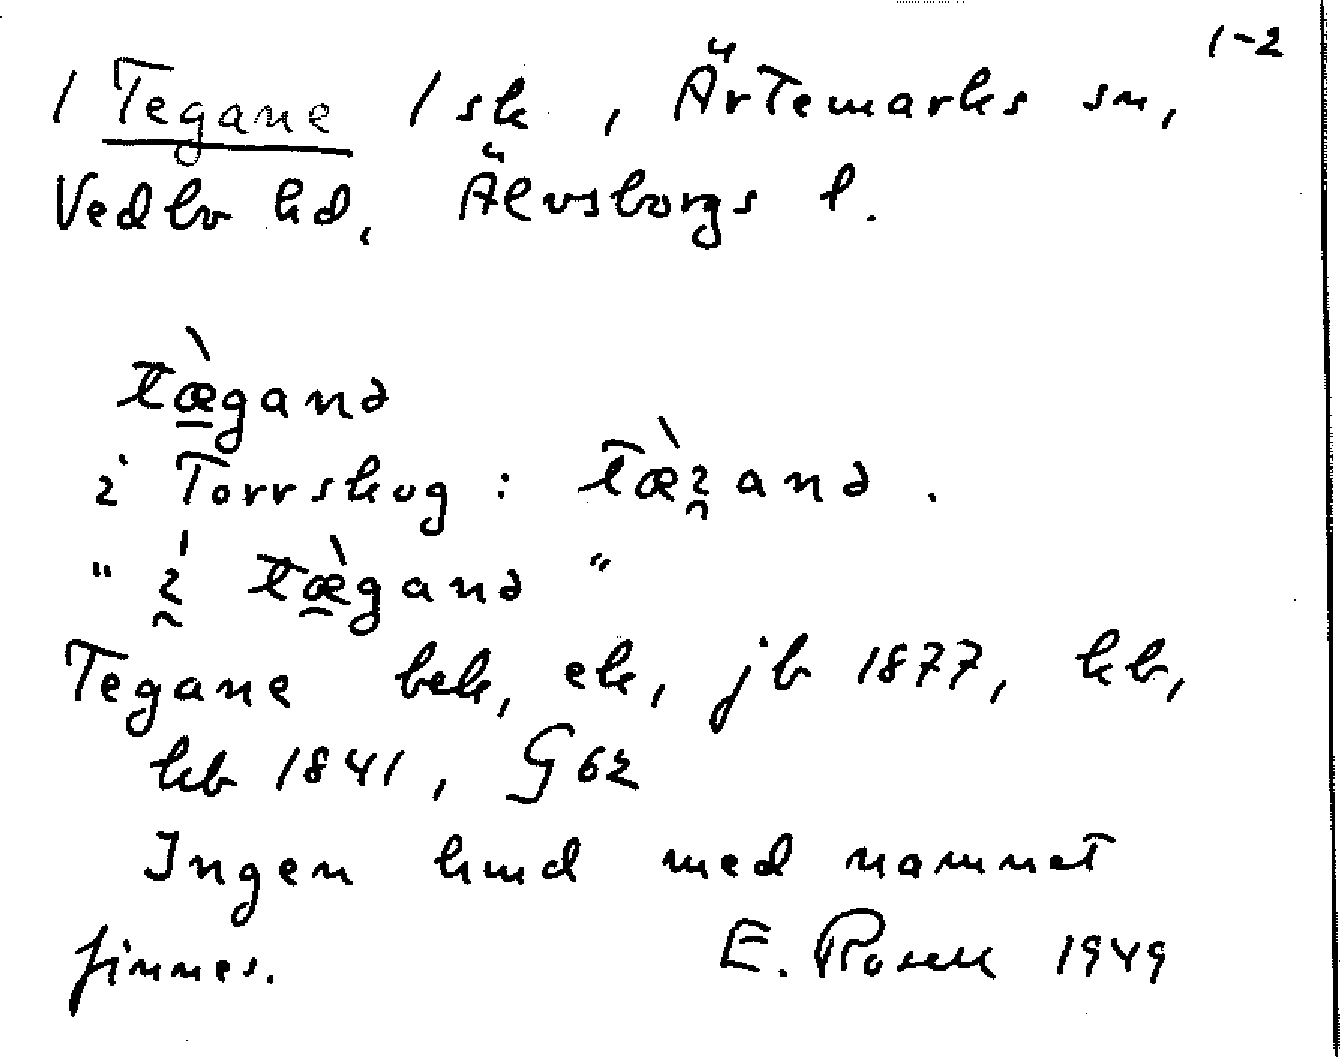 1-2
/ Tegane / sk, Ärtemarks sn,
Vedbo hd, Älvsborgs l.
tæ̀ganə
i Torrskog: tæ̀ganə.
"i tæ̀ganə"
Tegane bek, ek, jb 1877, kb,
hb 1841, G62
Ingen hmd med namnet
finnes. E. Rosell 1949